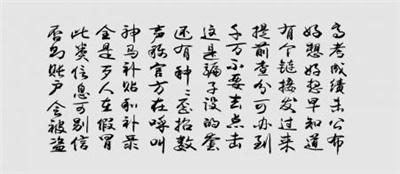 高考成绩未公布
好想好想早知道
有个链接发过来
提前查分可办到
千万不要去点击
这是骗子设的套
还有种种歪招数
声称官方在呼叫
神马补贴和补录
全是歹人在假冒
此类信息可别信
否则账户会被盗